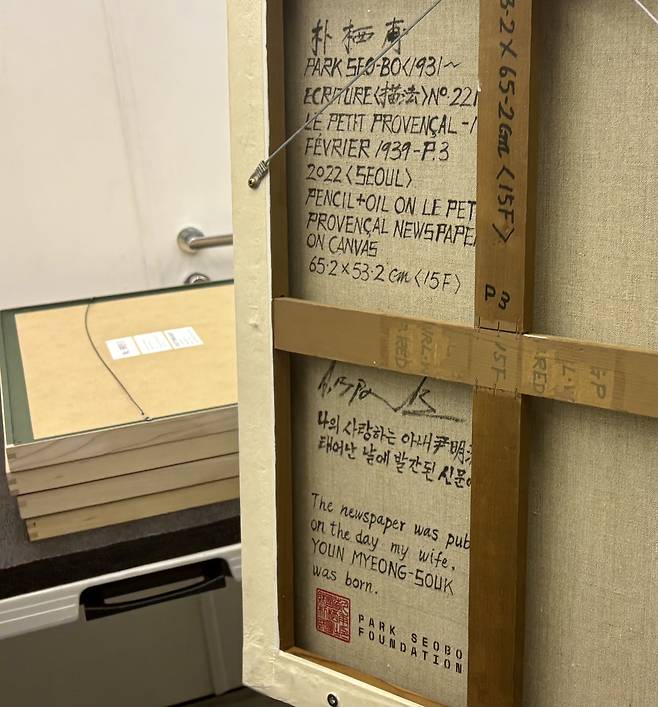 朴栖甫
PARK SEO-BO〈1931~
ECRITURE〈描法〉Nº.221
LE PETIT PROVENÇAL -1
FÉVRIER 1939-P.3
2022〈SEOUL〉
PENCIL+OIL ON LE PET
PROVENÇAL NEWSPAPE
ON CANVAS
65.2×53.2 cm〈15F〉
3-2 X 65-2 cm〈15F〉
P3
15F
나의 사랑하는 아내 尹明
태어난 날에 발간된 신문
The newspaper was pub
on the day my wife,
YOUN MYEONG-SOUK
was born.
PARK SEOBO
FOUNDATION